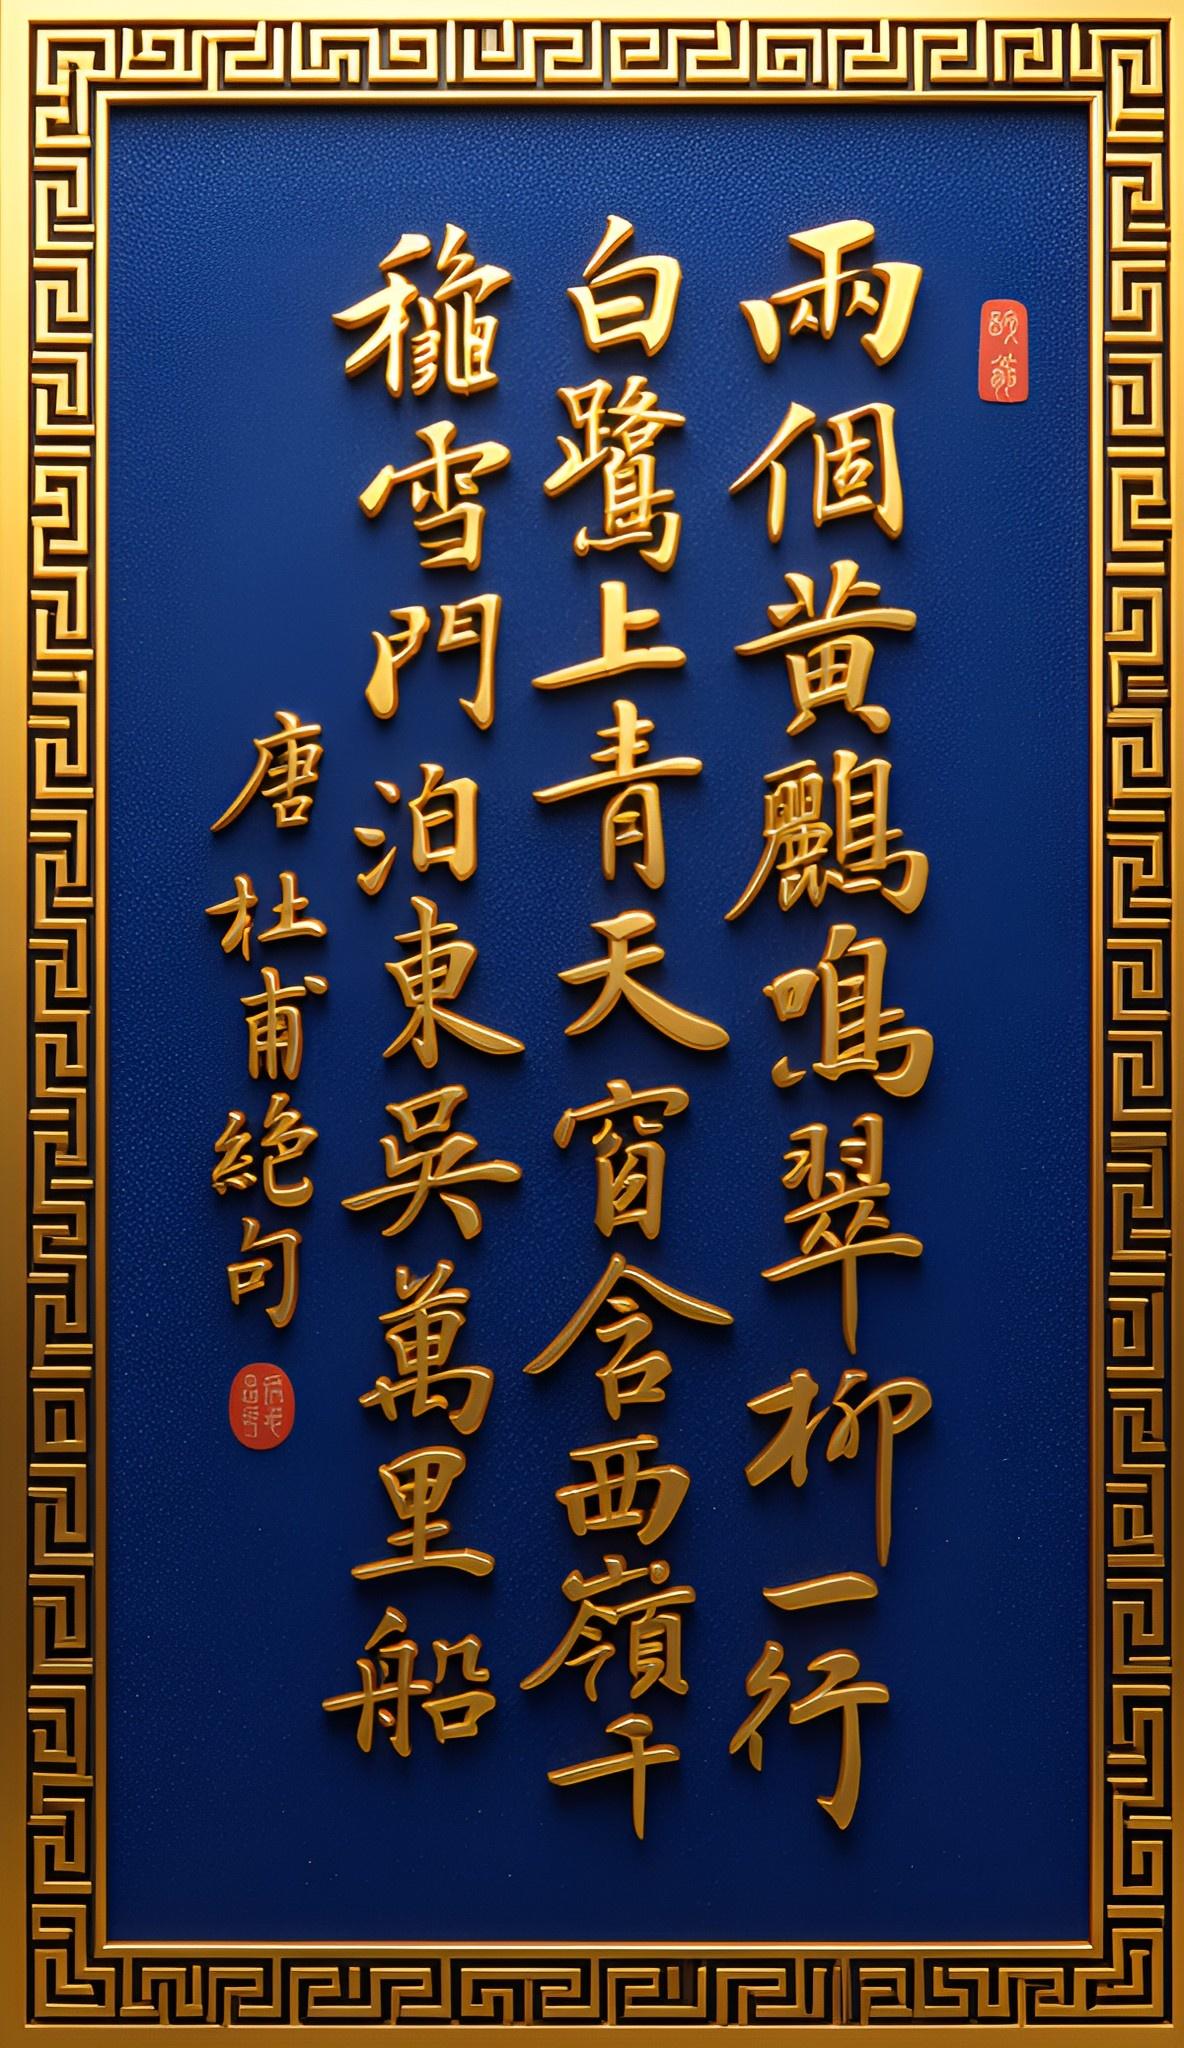 兩個黄鸝鳴翠柳一行
白鷺上青天窗含西嶺千
龝雪門泊東吳萬里船
唐杜甫絶句